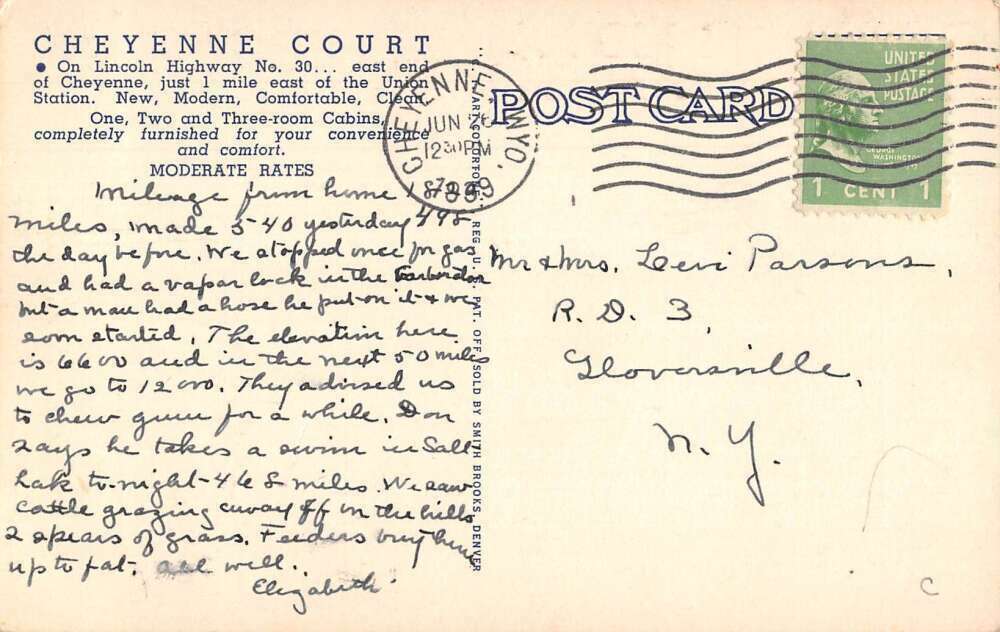 CHEYENNE COURT
● On Lincoln Highway No. 30... east end
of Cheyenne, just 1 mile east of the Union
Station. New, Modern, Comfortable, Clean
One, Two and Three-room Cabins,
completely furnished for your convenience
and comfort.
MODERATE RATES
Mileage from home
miles, made 540 yesterday 498
the day before. We stopped once for gas
and had a vapar lock in the carborator
but a man had a hose he put on it & we
soon started. The elevation here
is 6600 and in the next 50 miles
we go to 12000. They advised us
to chew gum for a while. Don
says he takes a swim in Salt
Lak to-night - 468 miles. We saw
cattle grazing away off in the hills
2 spears of grass. Feeders buy them
up to fat. all well.
Elizabeth
REG. U. S. PAT. OFF. SOLD BY SMITH BROOKS, DENVER
POST CARD
CHEYENNE WYO.
JUN 26
12 30 PM
UNITED
STATES
POSTAGE
GEORGE
WASHINGTON
1 CENT 1
Mr & Mrs. Levi Parsons,
R. D. 3,
Gloversville,
N. Y.
C